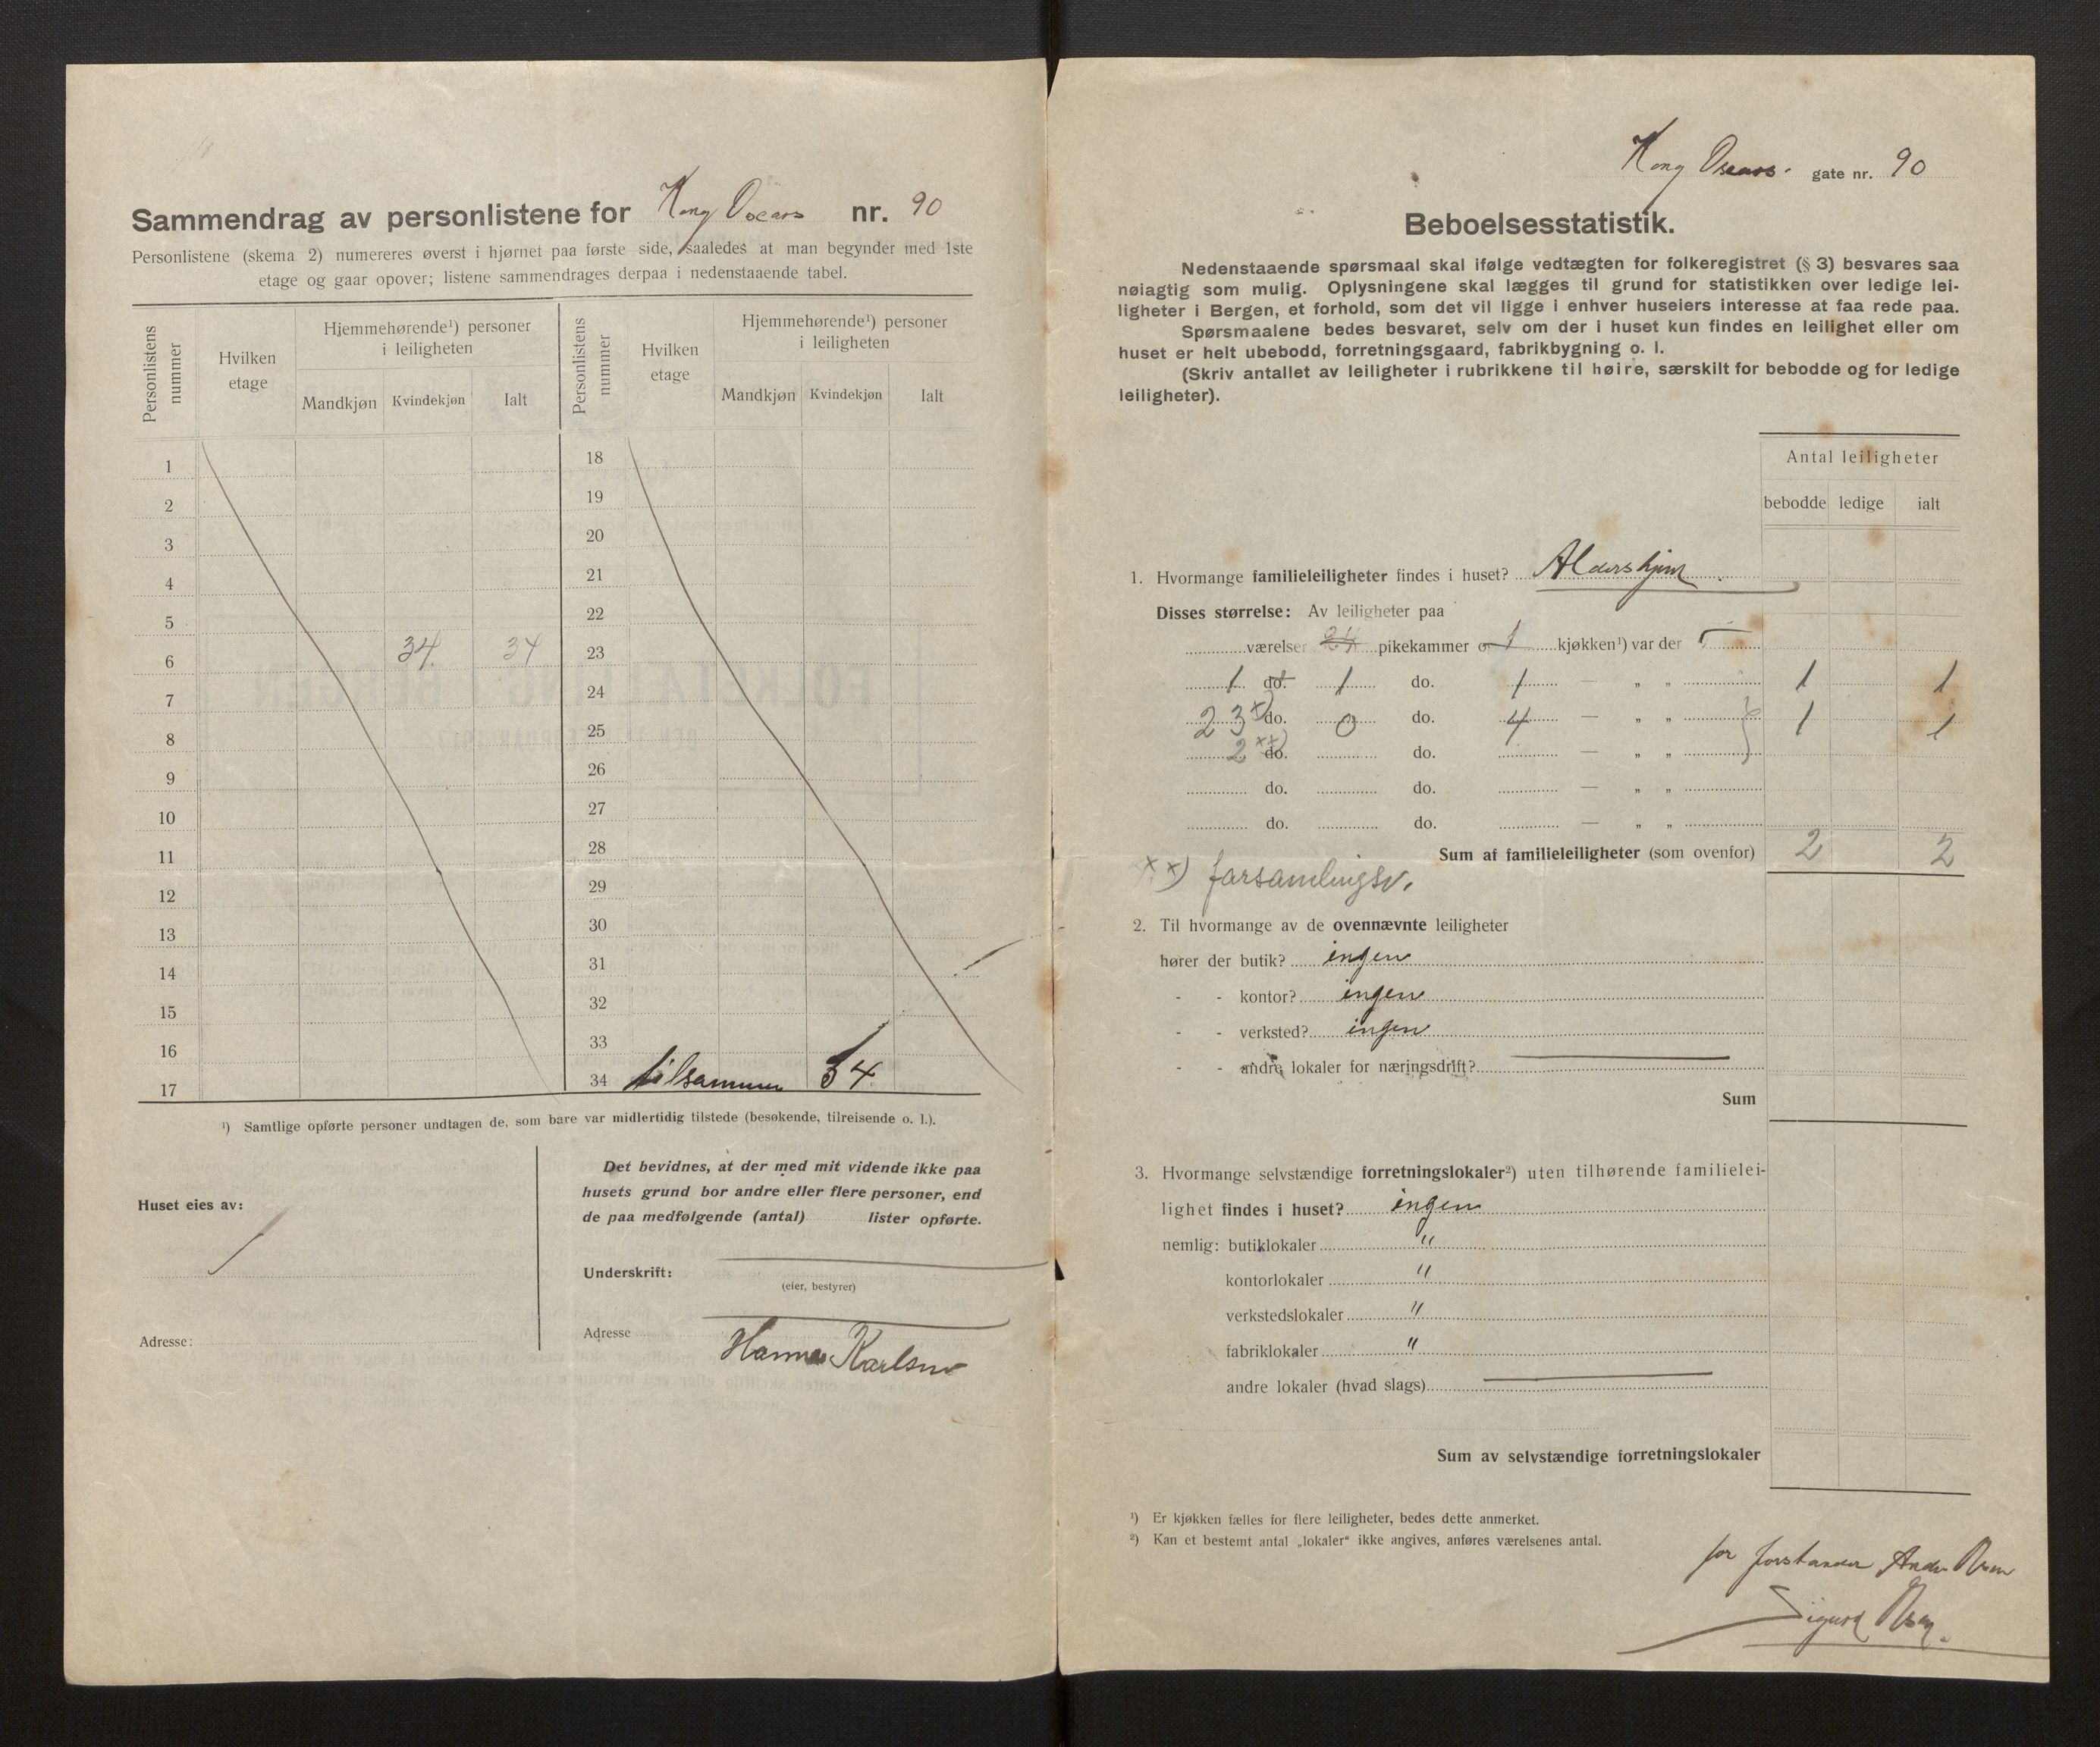 Sammendrag av personlistene for Kong Oscars nr. 90
Personlistene (skema 2) numereres øverst i hjørnet paa første side, saaledes at man begynder med 1ste
etage og gaar opover; listene sammendrages derpaa i nedenstaaende tabel.
Personlistens nummer
Hvilken etage
Hjemmehørende¹) personer i leiligheten
Mandkjøn Kvindekjøn Ialt
Personlistens nummer
Hvilken etage
Hjemmehørende¹) personer i leiligheten
Mandkjøn Kvindekjøn Ialt
1 18
2 19
3 20
4 21
5 22
6 34 34 23
7 24
8 25
9 26
10 27
11 28
12 29
13 30
14 31
15 32
16 33
17 34 tilsammen 34
¹) Samtlige opførte personer undtagen de, som bare var midlertidig tilstede (besøkende, tilreisende o. l.).
Huset eies av:
Adresse:
Det bevidnes, at der med mit vidende ikke paa
husets grund bor andre eller flere personer, end
de paa medfølgende (antal) lister opførte.
Underskrift:
(eier, bestyrer)
Adresse
Hanna Karlsen
Kong Oscars gate nr. 90
Beboelsesstatistik.
Nedenstaaende spørsmaal skal ifølge vedtægten for folkeregistret (§ 3) besvares saa
nøiagtig som mulig. Oplysningene skal lægges til grund for statistikken over ledige lei-
ligheter i Bergen, et forhold, som det vil ligge i enhver huseiers interesse at faa rede paa.
Spørsmaalene bedes besvaret, selv om der i huset kun findes en leilighet eller om
huset er helt ubebodd, forretningsgaard, fabrikbygning o. l.
(Skriv antallet av leiligheter i rubrikkene til høire, særskilt for bebodde og for ledige
leiligheter).
Antal leiligheter
bebodde ledige ialt
1. Hvormange familieleiligheter findes i huset? Aldershjem
Disses størrelse: Av leiligheter paa
værelser 24 pikekammer o 1 kjøkken¹) var der
1 do. 1 do. 1 — „ „ 1 1
23 x) do. 0 do. 4 — „ „ 1 1
2 xx) do. do. — „ „
do. do. — „ „
do. do. — „ „
Sum af familieleiligheter (som ovenfor) 2 2
xx) forsamlingsv.
2. Til hvormange av de ovennævnte leiligheter
hører der butik? ingen
- - kontor? ingen
- - verksted? ingen
- - andre lokaler for næringsdrift?
Sum
3. Hvormange selvstændige forretningslokaler²) uten tilhørende familielei-
lighet findes i huset? ingen
nemlig: butiklokaler "
kontorlokaler "
verkstedslokaler "
fabriklokaler "
andre lokaler (hvad slags)
Sum av selvstændige forretningslokaler
¹) Er kjøkken fælles for flere leiligheter, bedes dette anmerket.
²) Kan et bestemt antal „lokaler“ ikke angives, anføres værelsenes antal.
for forstander
Sigurd